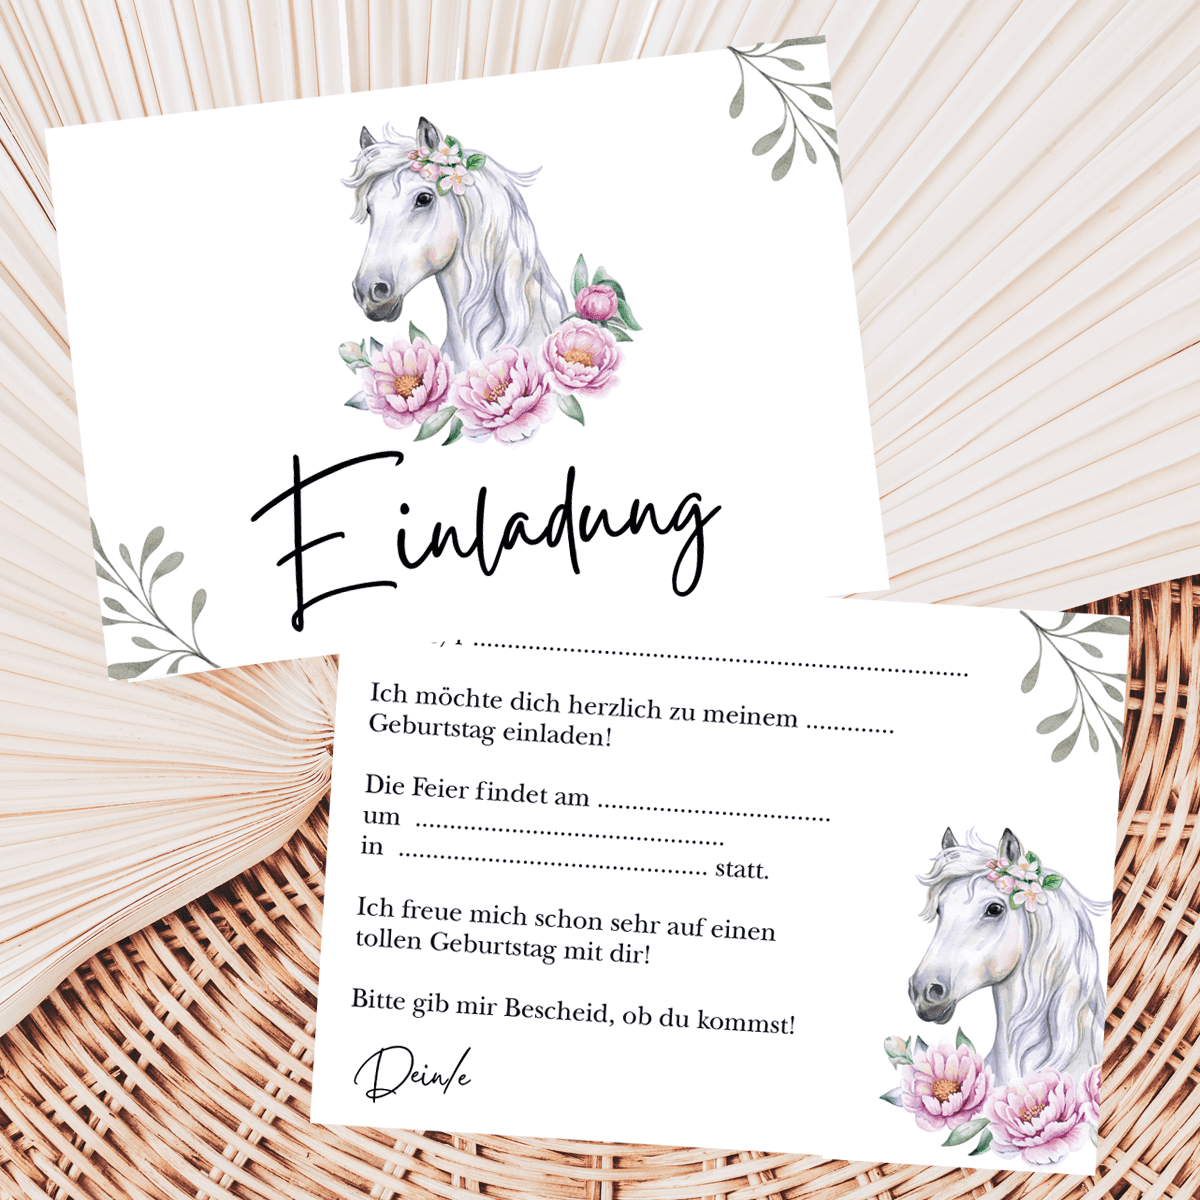 Einladung
...............................................................................
Ich möchte dich herzlich zu meinem .............
Geburtstag einladen!
Die Feier findet am ..................................
um .............................................
in ............................................. statt.
Ich freue mich schon sehr auf einen
tollen Geburtstag mit dir!
Bitte gib mir Bescheid, ob du kommst!
Dein/e